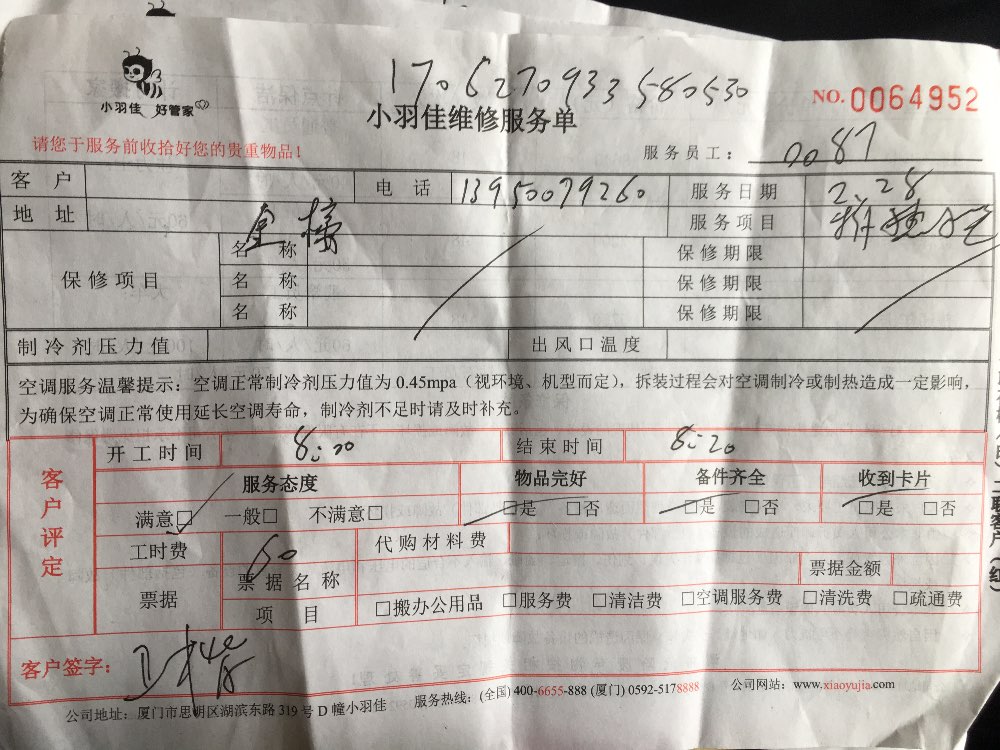 170627093358 0530
小羽佳 好管家
小羽佳维修服务单
NO. 0064952
请您于服务前收拾好您的贵重物品!
服务员工： 0087
客户 电话 13950079260 服务日期 2.28
地址 服务项目
保修项目 名称 保修期限
名称 保修期限
名称 保修期限
制冷剂压力值 出风口温度
空调服务温馨提示：空调正常制冷剂压力值为 0.45mpa（视环境、机型而定），拆装过程会对空调制冷或制热造成一定影响，
为确保空调正常使用延长空调寿命，制冷剂不足时请及时补充。
客户评定
开工时间 8:00 结束时间 8:20
服务态度 物品完好 备件齐全 收到卡片
满意□ 一般□ 不满意□ □是 □否 □是 □否 □是 □否
工时费 60 代购材料费
票据 票据名称 票据金额
项目 □搬办公用品 □服务费 □清洁费 □空调服务费 □清洗费 □疏通费
客户签字：
公司地址：厦门市思明区湖滨东路 319 号 D 幢小羽佳 服务热线：(全国) 400-6655-888 (厦门) 0592-5178888 公司网站：www.xiaoyujia.com